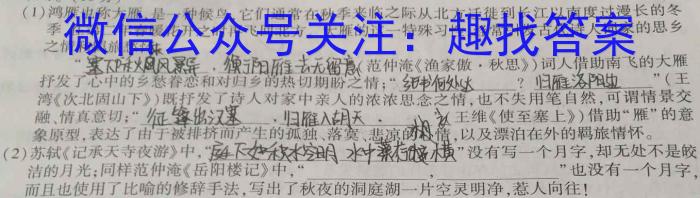 (1)鸿雁也称大雁,是一种候鸟,它们通常在秋季来临之际从北方迁徙到长江以南度过漫长的冬
季
微信公众号关注:趣找答案
思乡
之情
“塞下秋来风景异,衡阳雁去无留意”(范仲淹《渔家傲·秋思》)词人借助南飞的大雁
抒发了心中的乡愁眷恋和对归乡的热切期盼之情;“乡书何处达?归雁洛阳边”(王
湾《次北固山下》)既抒发了诗人对家中亲人的浓浓思念之情,也不失用笔自然,可谓情景交
融、情真意切;“征蓬出汉塞,归雁入胡天”(王维《使至塞上》)借助“雁”的意
胡
象原型,表达了由于被排挤而产生的孤独、落寞、悲凉的心情,以及漂泊在外的羁旅情怀。
(2)苏轼《记承天寺夜游》中,“庭下如积水空明,水中藻荇交横”没有写一个月字,却无处不是皎
洁的月光;同样范仲淹《岳阳楼记》中,“ , ”也没有一个月字,
而且也使用了比喻的修辞手法,写出了秋夜的洞庭湖一片空灵明净,惹人向往!